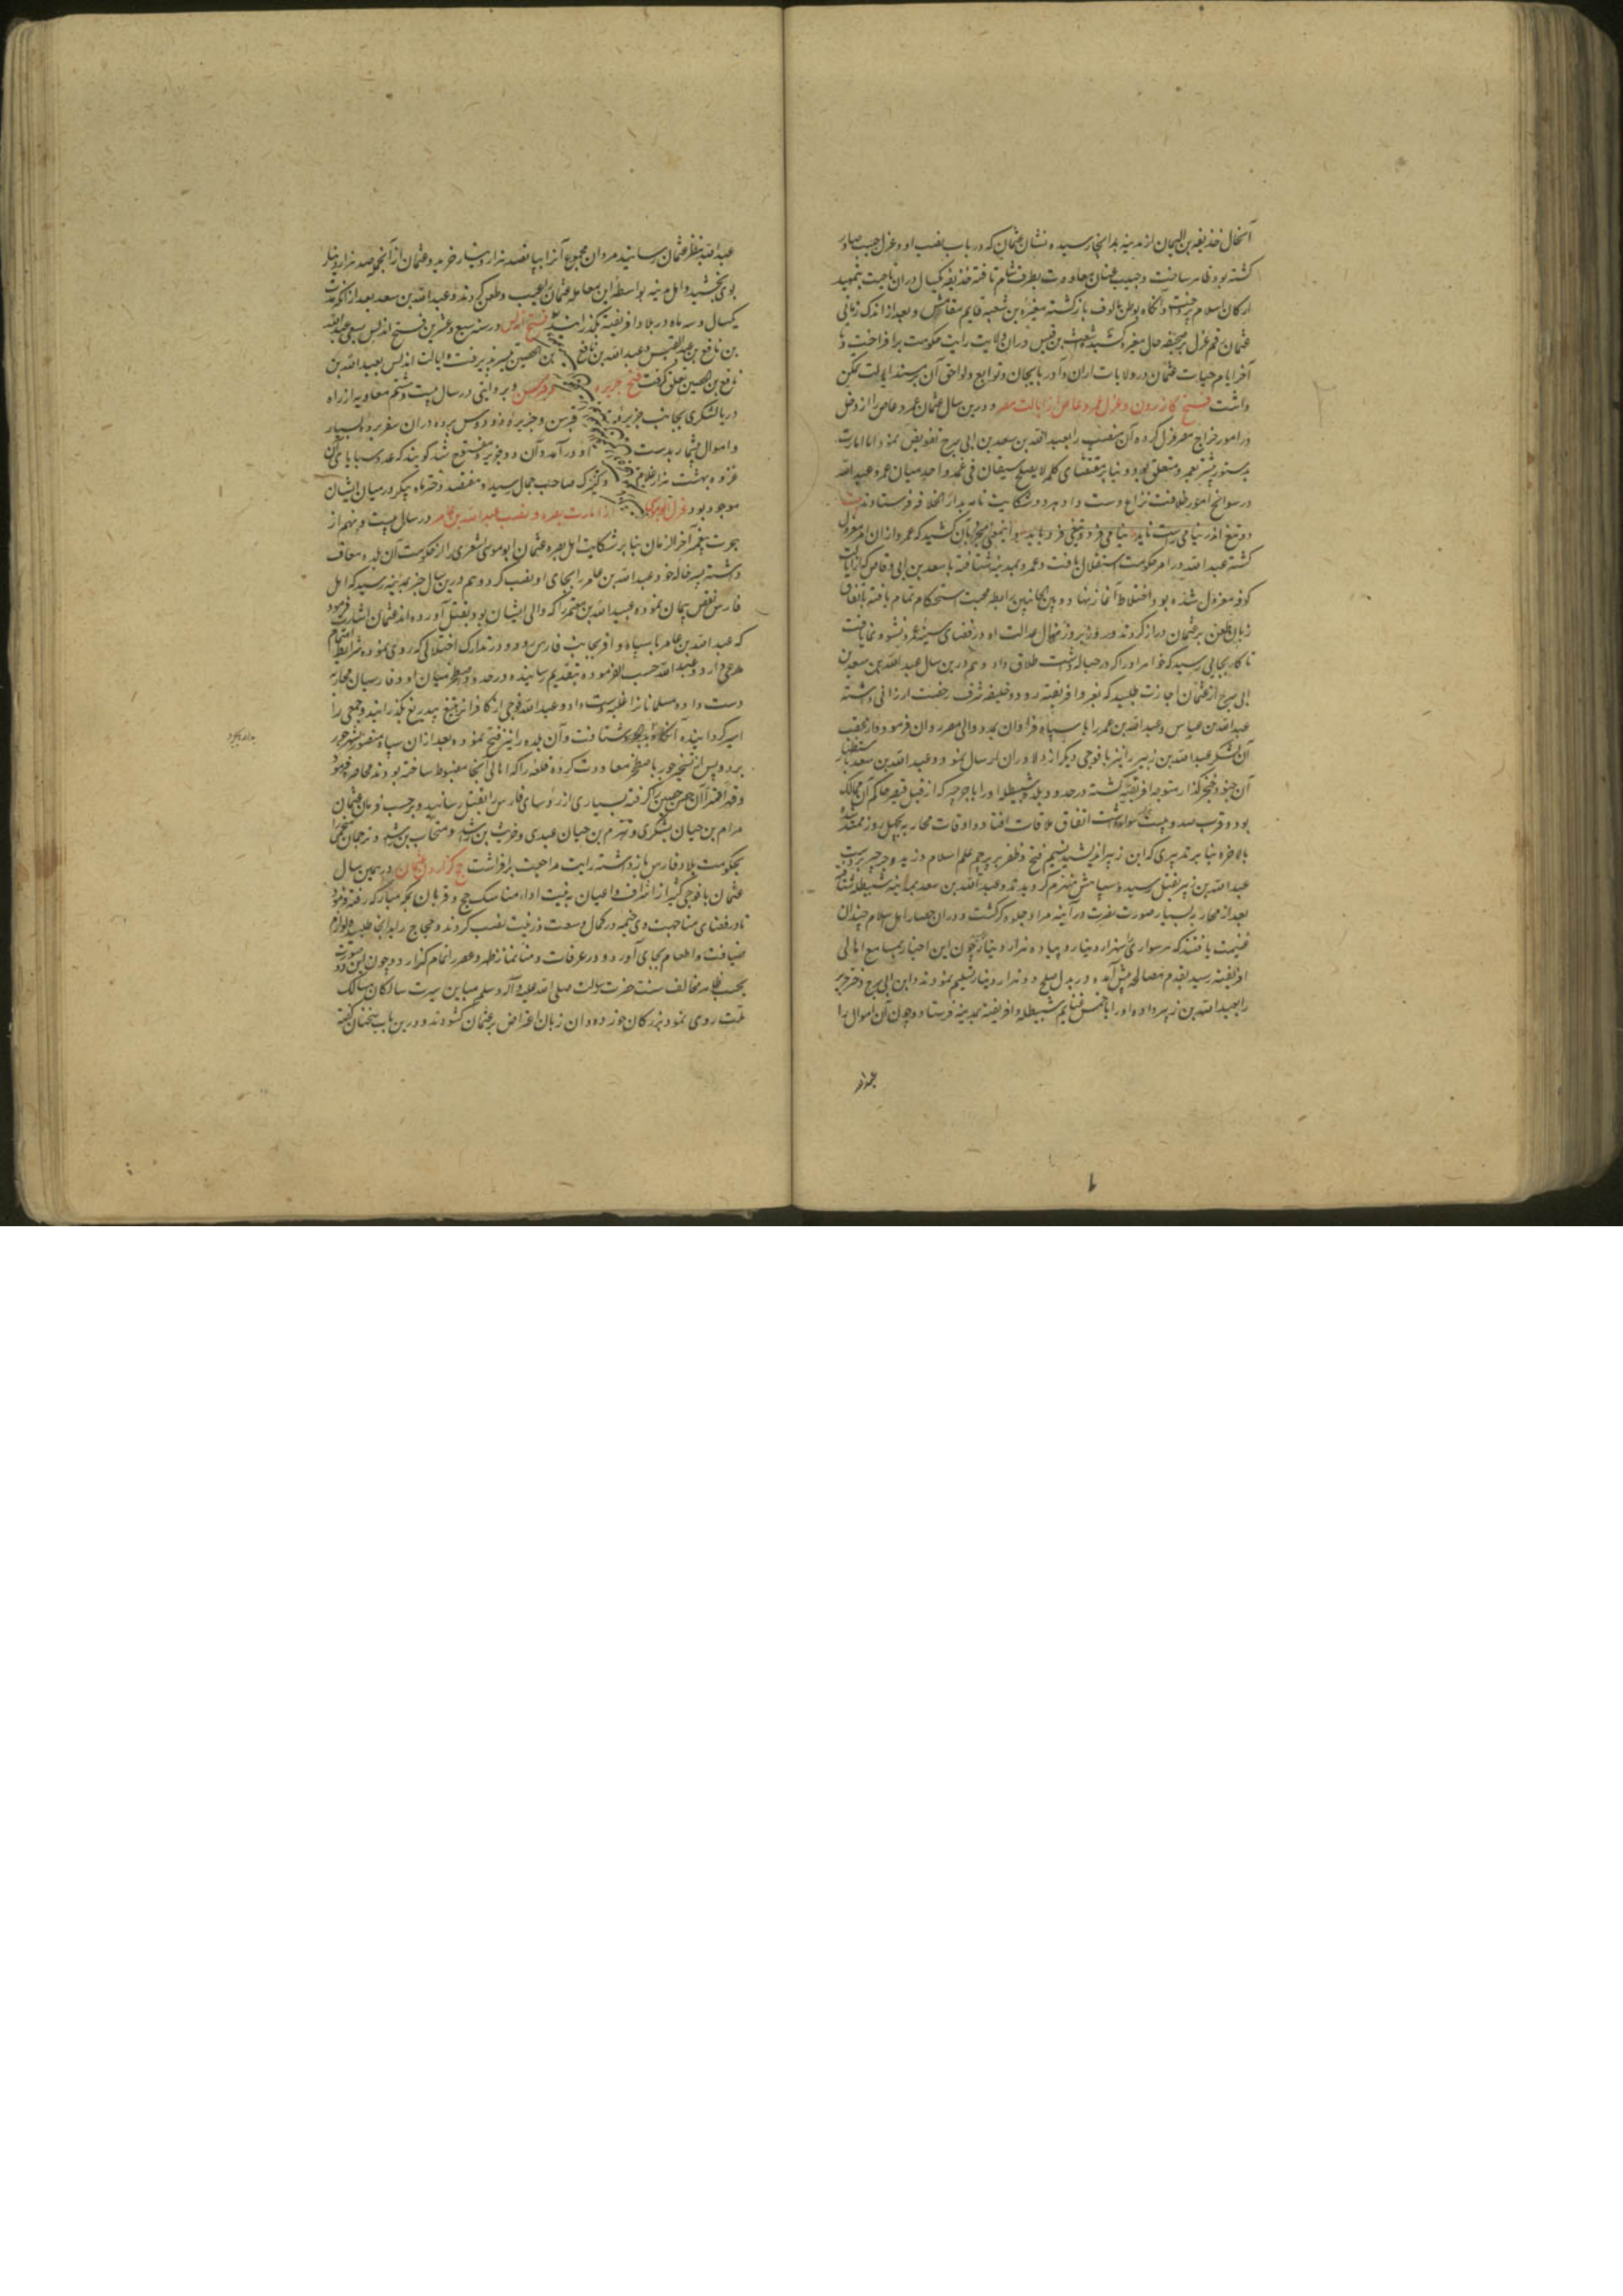 آنحال حذیفه بن الیمان از مدینه بدانجا رسیده نشان عثمان که در باب نصب او و عزل حبیب صادر
کشته بود ظاهر ساخت و حبیب عنان معاودت بطرف شام تافته حذیفه یکسال در ان ناحیت بتمهید
ارکان اسلام پرداخت و آنکاه بوطن مالوف بازکشته مغیره بن شعبه قایم مقامش و بعد از اندک زمانی
عثمان رقم عزل بر صحیفه حال مغیره کشید و اشعث بن قیس در ان ولایت رایت حکومت برافراخت و تا
آخر ایام حیات عثمان در ولایات اران و آذربایجان و توابع و لواحق آن بر مسند ایالت تمکن
داشت فتح کازرون و عزل عمرو عاص از ایالت مصر و درین سال عثمان عمرو عاص را از دخل
در امور خراج مصر عزل کرده آن منصب را بعبد الله بن سعد بن ابی سرح تفویض نمود اما امارت
بدستور پیشتر بعمرو متعلق بود و بنا بر مقتضای کلمه لا یصلح سیفان فی غمد واحد میان عمرو و عبد الله
در سوانح امور خلافت نزاع دست داد و هر دو شکایت نامه بدار الخلافه فرستادند بیت
دو تیغ اندر نیامی راست ناید نیامی فرد و تیغی فرد باید
کشته عبد الله در امر حکومت استقلال یافت و عمرو بمدینه شتافته با سعد بن ابی وقاص که از ایالت
کوفه معزول شده بود اختلاط آغاز نهاد و بین الجانبین رابطه محبت استحکام تمام یافته باتفاق
زبان طعن بر عثمان دراز کردند و روز بروز نهال عداوت او در فضای سینه عمرو نشو و نما یافت
تا کار بجایی رسید که خواهر او را که در حباله داشت طلاق داد و هم درین سال عبد الله بن سعد بن
ابی سرح از عثمان اجازت طلبید که بغزو افریقیه رود و خلیفه شرف رخصت ارزانی داشته
عبد الله بن عباس و عبد الله بن عمر را با سپاه فراوان بمدد والی مصر روان فرمود و از عقب
آن لشکر عبد الله بن زبیر را نیز با فوجی دیکر از دلاوران ارسال نمود و عبد الله بن سعد باستظهار
آن جنود خنجرکذار متوجه افریقیه کشته در حدود بلده سبیطله او را با جرجیر که از قبل قیصر حاکم آن ممالک
بود و قرب صد و بیست هزار سوار داشت اتفاق ملاقات افتاد و اوقات محاربه بچهل روز ممتد شده
بالاخره بنا بر تدبیری که ابن زبیر اندیشید نسیم فتح و ظفر بر پرچم علم اسلام وزید و جرجیر بر دست
عبد الله بن زبیر بقتل رسیده سپاهش منهزم کردیدند و عبد الله بن سعد بمدینه سبیطله شتافته
بعد از محاربه بسیار صورت نصرت در آینه مراد جلوه کر کشت و در ان حصار اهل اسلام چندان
غنیمت یافتند که هر سواری سه هزار دینار و پیاده هزار دینار چون این اخبار بمسامع اهالی
افریقیه رسید بقدم مصالحه پیش آمده و در بدل صلح دو هزار دینار تسلیم نمودند و ابن ابی سرح دختر جرجیر
را بعبد الله بن زبیر داده او را با خمس غنایم سبیطله و افریقیه بمدینه فرستاد و چون آن اموال را
عبد الله
عبد الله بنظر عثمان رسانید مروان مجموع آنرا بپانصد هزار دینار خرید و عثمان از آنجمله صد هزار دینار
بوی بخشید و اهل مدینه بواسطه این معامله عثمان را عیب و طعن کردند و عبد الله بن سعد بعد از آنکه مدت
یکسال و سه ماه در بلاد افریقیه بکذرانید فتح اندلس در سنه سبع و عشرین فتح اندلس بسعی عبد الله
بن نافع بن عبد القیس و عبد الله بن نافع بن الحصین میسر پذیرفت و ایالت اندلس بعبد الله بن
نافع بن الحصین تعلق کرفت فتح جزیره و بروایتی در سال بیست و هشتم معاویه از راه
دریا لشکری بجانب جزیره قبرس و جزیره رودس برده در ان سفر برده بسیار
و اموال بیشمار بدست او در آمد و آن دو جزیره مفتوح شد کویند که عدد سبایای آن
غزوه بهشت هزار غلام و کنیزک صاحب جمال رسید و هفتصد دختر ماه پیکر در میان ایشان
موجود بود عزل ابو موسی از امارت بصره و نصب عبد الله بن عامر در سال بیست و نهم از
هجرت پیغمبر آخر الزمان بنا بر شکایت اهل بصره عثمان ابو موسی اشعری را از حکومت آن بلده معاف
داشته پسر خاله خود عبد الله بن عامر را بجای او نصب کرد و هم درین سال خبر بمدینه رسید که اهل
فارس نقض پیمان نموده عبید الله بن معمر را که والی ایشان بود بقتل آورده اند عثمان اشارت فرمود
که عبد الله بن عامر با سپاه وافر بجانب فارس رود و در تدارک اختلالی که روی نموده شرایط اهتمام
مرعی دارد و عبد الله حسب الفرموده بتقدیم رسانیده در حدود اصطخر میان او و فارسیان محاربه
دست داده مسلمانانرا غلبه دست داد و عبد الله فوجی از کافران بتیغ بیدریغ بکذرانید و جمعی را
اسیر کردانیده آنکاه شتافت و آن بلده را نیز فتح نموده بعد از ان سپاه منصور بشهر جور
برد و پس از تسخیر جور باصطخر معاودت کرده قلعه را که اهالی آنجا مضبوط ساخته بودند محاصره فرمود
و قهرا و قسرا آن حصن حصین را کرفته بسیاری از رؤسای فارس را بقتل رسانید و برحسب فرمان عثمان
هرم بن حیان یشکری و هرم بن حیان عبدی و خریت بن راشد و منجاب بن راشد و ترجمان هجیمی را
بحکومت بلاد فارس بازداشته رایت مراجعت برافراشت حج کزاردن عثمان در همین سال
عثمان با فوجی کثیر از اشراف و اعیان به نیت اداء مناسک حج و قربان بمکه مبارکه رفته فرمود
تا در فضای منا جهت وی خیمه در کمال وسعت و زینت نصب کردند و حجاج را بدانجا طلبیده لوازم
ضیافت و اطعام بجای آورد و در عرفات و منا نماز ظهر و عصر را تمام کزارد و چون این دو صورت
بحسب ظاهر مخالف سنت حضرت رسالت صلی الله علیه و آله و سلم و مباین سیرت سالکان مسالک
ملت روی نمود بزرکان زبان اعتراض بر عثمان کشودند و درین باب سخنان کفته